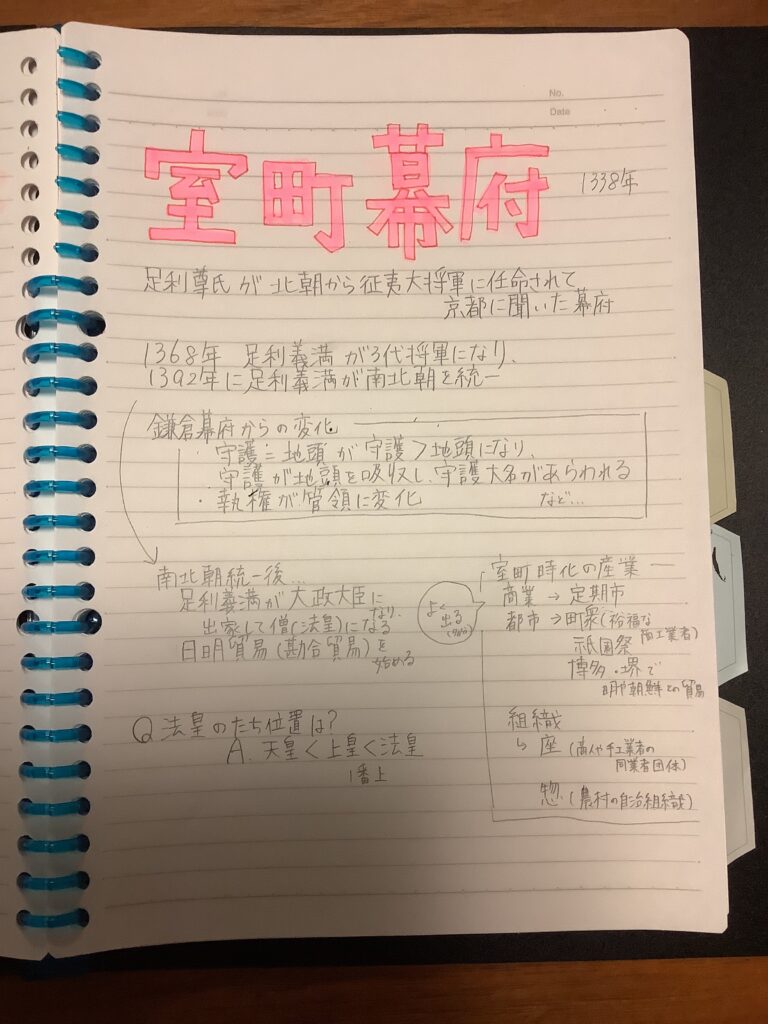 No.
Date
室町幕府 1338年
足利尊氏が北朝から征夷大将軍に任命されて
京都に聞いた幕府
1368年 足利義満が3代将軍になり、
1392年に足利義満が南北朝を統一
鎌倉幕府からの変化
・守護≒地頭が守護>地頭になり、
守護が地頭を吸収し、守護大名があらわれる
・執権が管領に変化 など…
南北朝統一後…
足利義満が大政大臣に
なり、
出家して僧(法皇)になる
日明貿易(勘合貿易)を
始める
Q 法皇のたち位置は?
A. 天皇<上皇<法皇
1番上
よく
出る
(多分)
室町時化の産業
商業→定期市
都市→町衆(裕福な
商工業者)
祇園祭
博多・堺で
明や朝鮮との貿易
組織
↳座(商人や手工業者の
同業者団体)
惣(農村の自治組織)